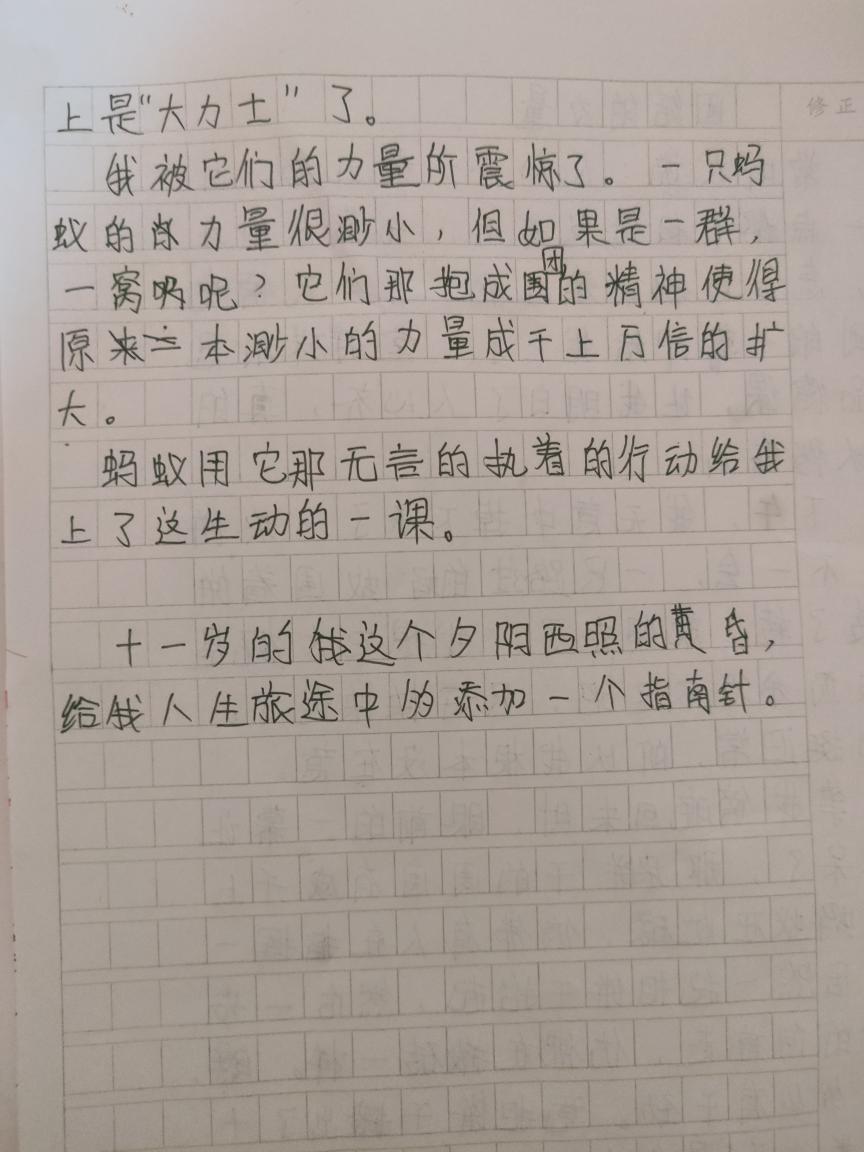 修正
上是“大力士”了。
我被它们的力量所震惊了。一只蚂
蚁的力量很渺小，但如果是一群，
一窝呢？它们那抱成团的精神使得
原本渺小的力量成千上万倍的扩
大。
蚂蚁用它那无言的执着的行动给我
上了这生动的一课。
十一岁的我这个夕阴西照的黄昏，
给我人生旅途中的添加一个指南针。